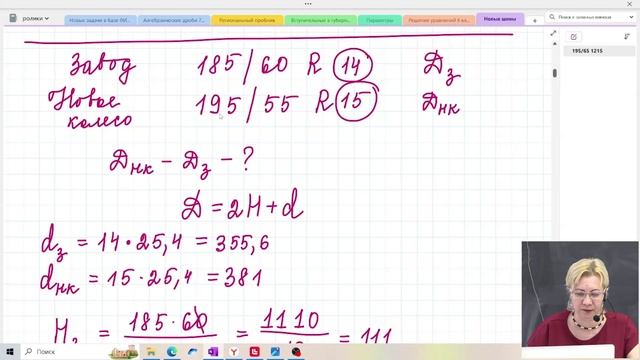 ролики
Новые задачи в базе ФИ...
Алгебраические дроби 7...
Региональный пробник
Вступительные в губерн...
Параметры
Решение уравнений 6 кл...
Новые шины
Завод 185/60 R 14 Дз
Новое колесо 195/55 R 15 Днк
Днк - Дз - ?
Д = 2H + d
dз = 14 · 25,4 = 355,6
dнк = 15 · 25,4 = 381
185 · 60 = 1110 = 111
195/65 1215
Поиск